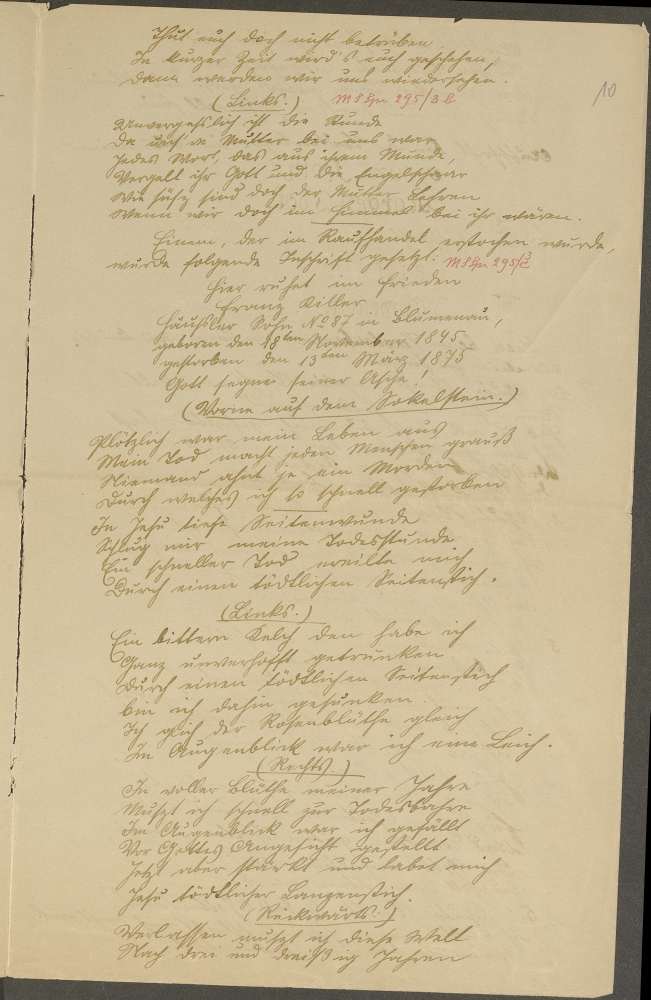 Thut euch doch nicht betrüben
In kurzer Zeit wird's auch geschehen,
Dann werden wir uns wiedersehen.
(Links.) 295/3 b
10
Unvergeßlich ist die Stunde
Da noch die Mutter bei uns war
Jedes Wort, das aus ihrem Munde,
Vergelt ihr Gott und die Engelschaar
Wie süß sind doch der Mutter Lehren
Wenn wir doch im Himmel bei ihr wären.
Einem, der im Raufhandel erstochen wurde,
wurde folgende Inschrift gesetzt: 295/3
Hier ruhet im Frieden
Franz Killer
Häusler Sohn No 87 in Blumenau,
geboren den 18ten November 1845
gestorben den 13ten März 1875
Gott segne seiner Asche!
(Vorne auf dem Sokelstein.)
Plötzlich war mein Leben aus
Mein Tod macht jeden Menschen grauß
Niemand ahnt je ein Morden
Durch welches ich so schnell gestorben
In Jesu tiefe Seitenwunde
Schlug mir meine Todesstunde
Ein schneller Tod ereilte mich
Durch einen tödtlichen Seitenstich.
(Links.)
Ein bittern Kelch den habe ich
Ganz unverhofft getrunken
Durch einen tödtlichen Seitenstich
bin ich dahin gesunken.
Ich glich der Rosenblüthe gleich
Im Augenblick war ich eine Leich.
(Rechts.)
In voller Blüthe meiner Jahre
Mußt ich schnell zur Todesbahre
Im Augenblick war ich gefällt
Vor Gottes Angesicht gestellt
Jetzt aber stärkt und labet mich
Jesu tödtlicher Lanzenstich.
(Rückwärts.)
Verlassen mußt ich diese Welt
Nach drei und dreißig Jahren